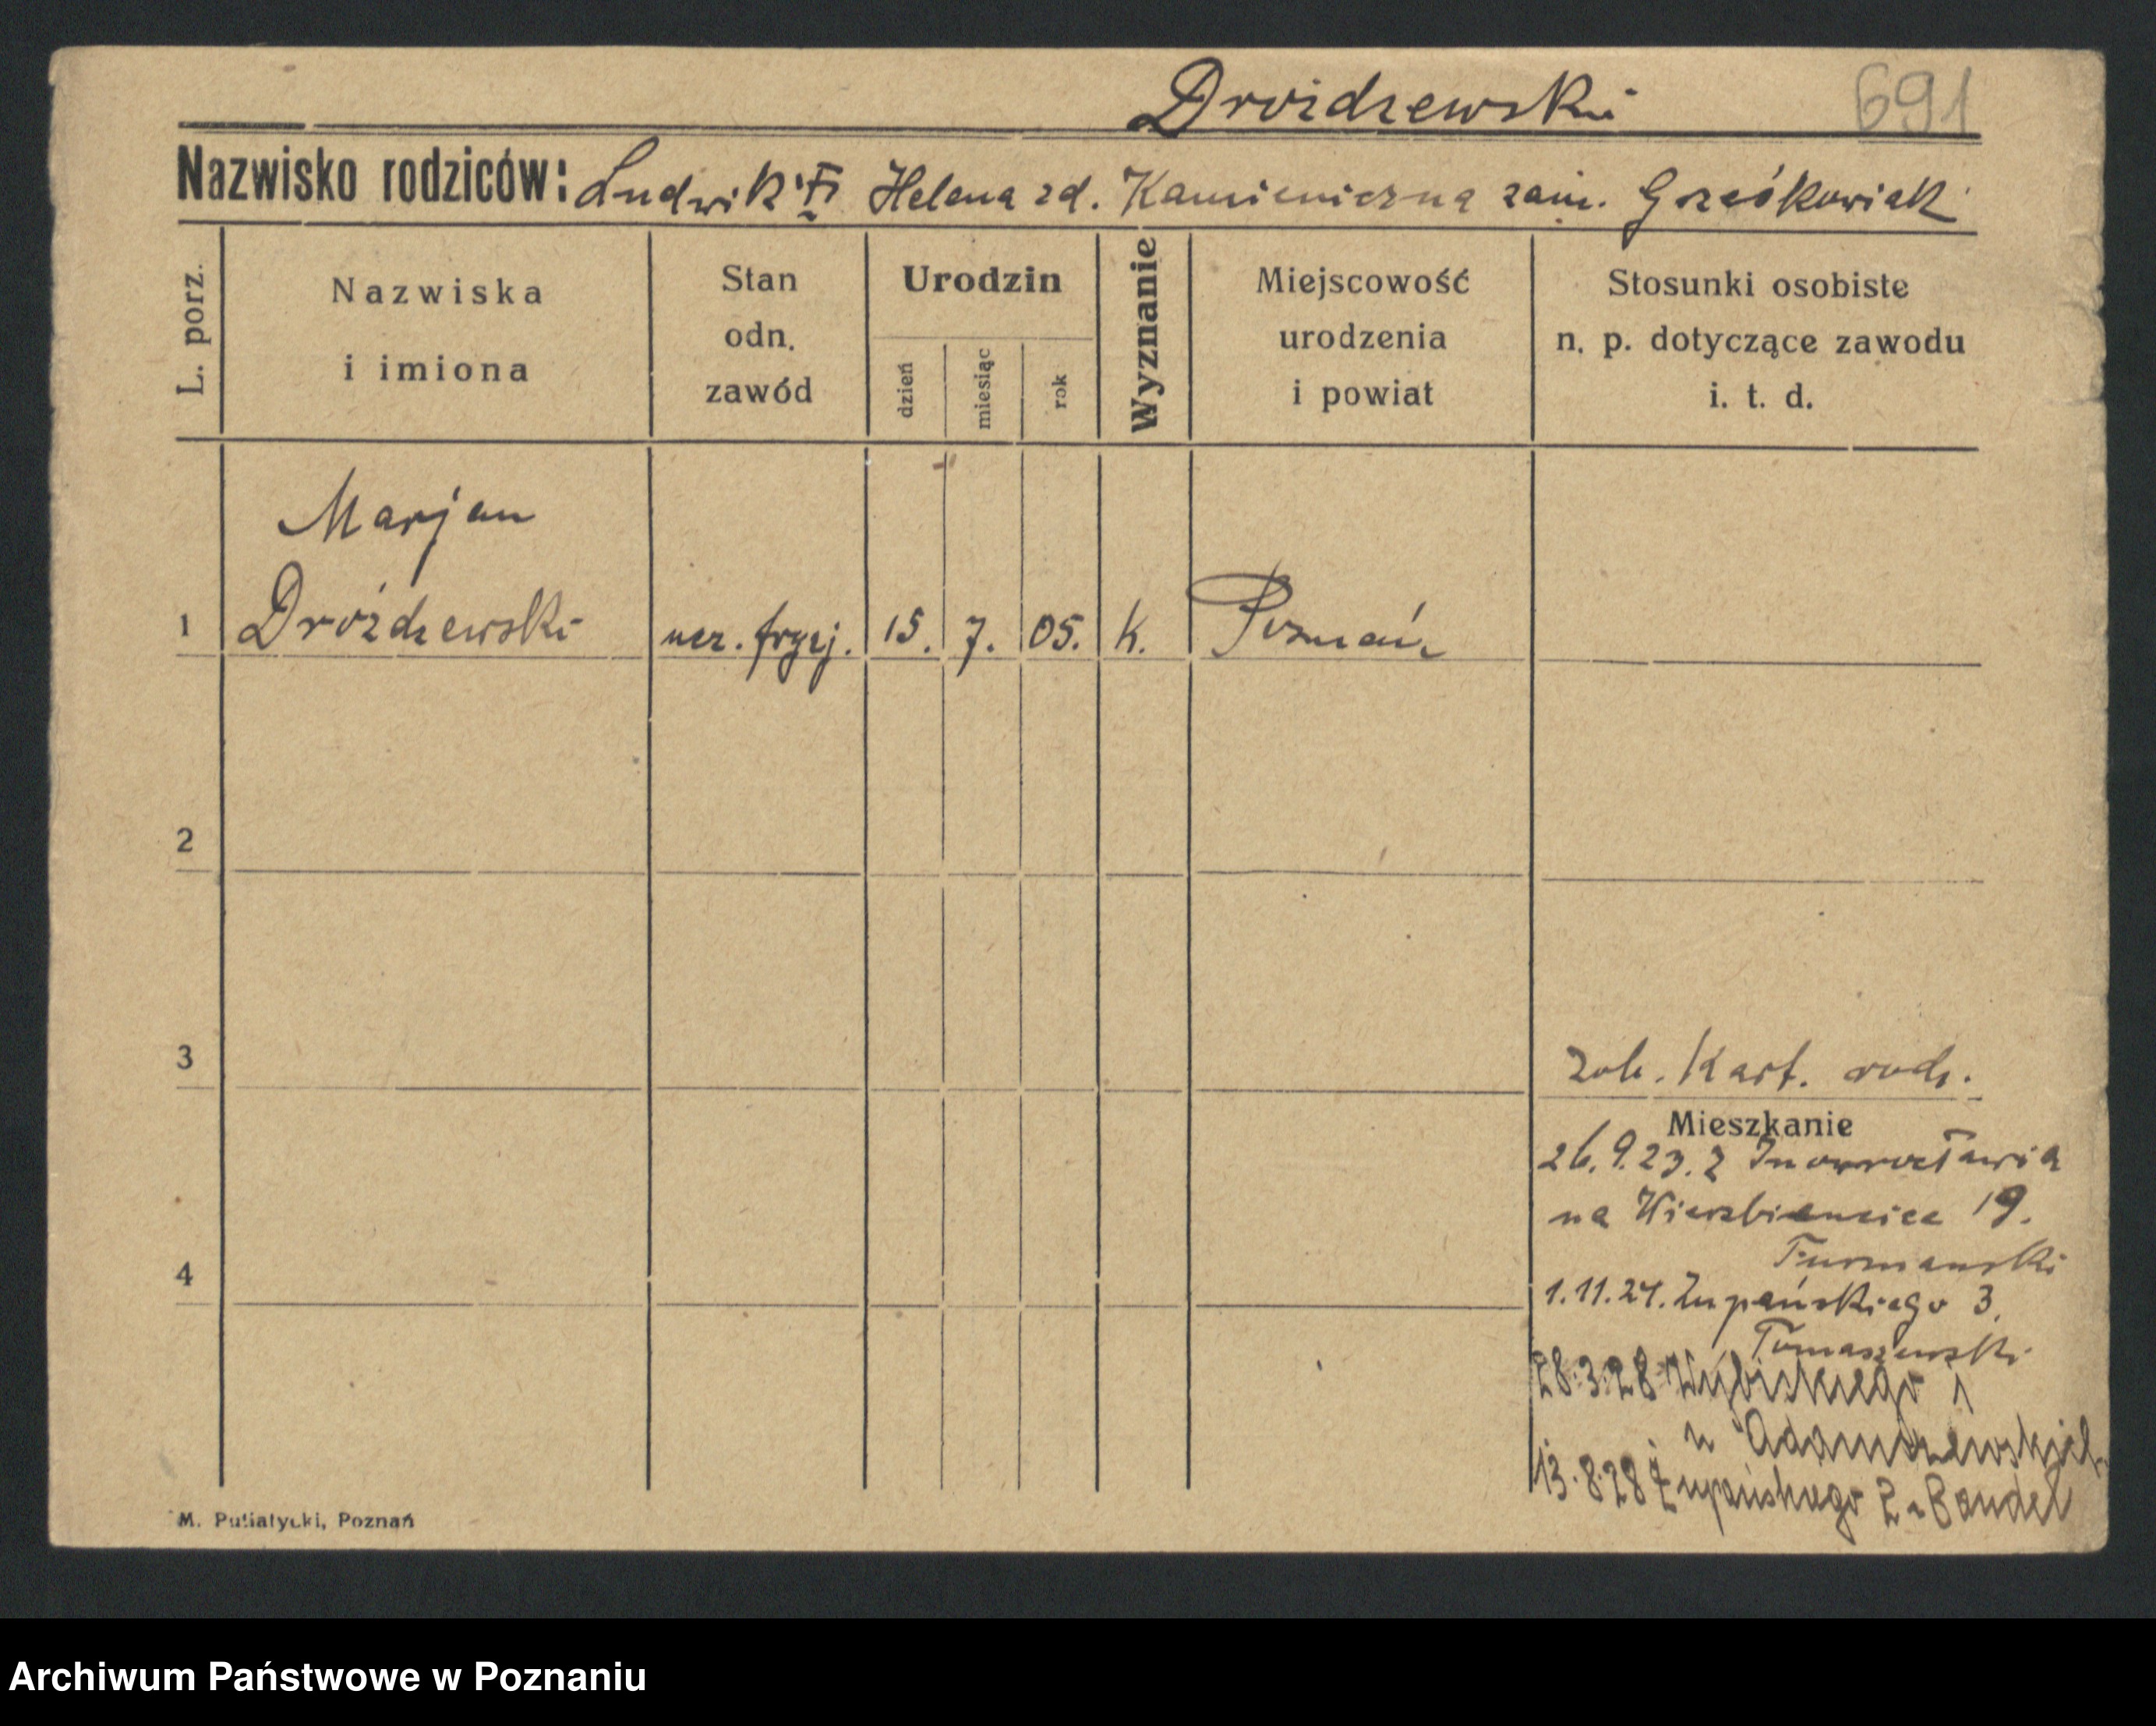 Droidzewski 691
Nazwisko rodziców: Ludwik i Helena zd. Kamieniczna zam. Grześkowiak
L. porz.
Nazwiska
i imiona
Stan
odn.
zawód
Urodzin
dzień
miesiąc
rok
Wyznanie
Miejscowość
urodzenia
i powiat
Stosunki osobiste
n. p. dotyczące zawodu
i. t. d.
Marjan
1 Dróżdzewski ucz. fryzj. 15. 7. 05. K. Poznań
2
3 zob. Kart. rodz.
Mieszkanie
26.9.23. z Inowrocławia
na Wierzbiencice 19.
4
1.11.24. Żupańskiego 3.
Tomaszewski
28.3.28 Wybickiego 1
13.8.28 Żupańskiego 2 Bandel
M. Putiatycki, Poznań
Archiwum Państwowe w Poznaniu